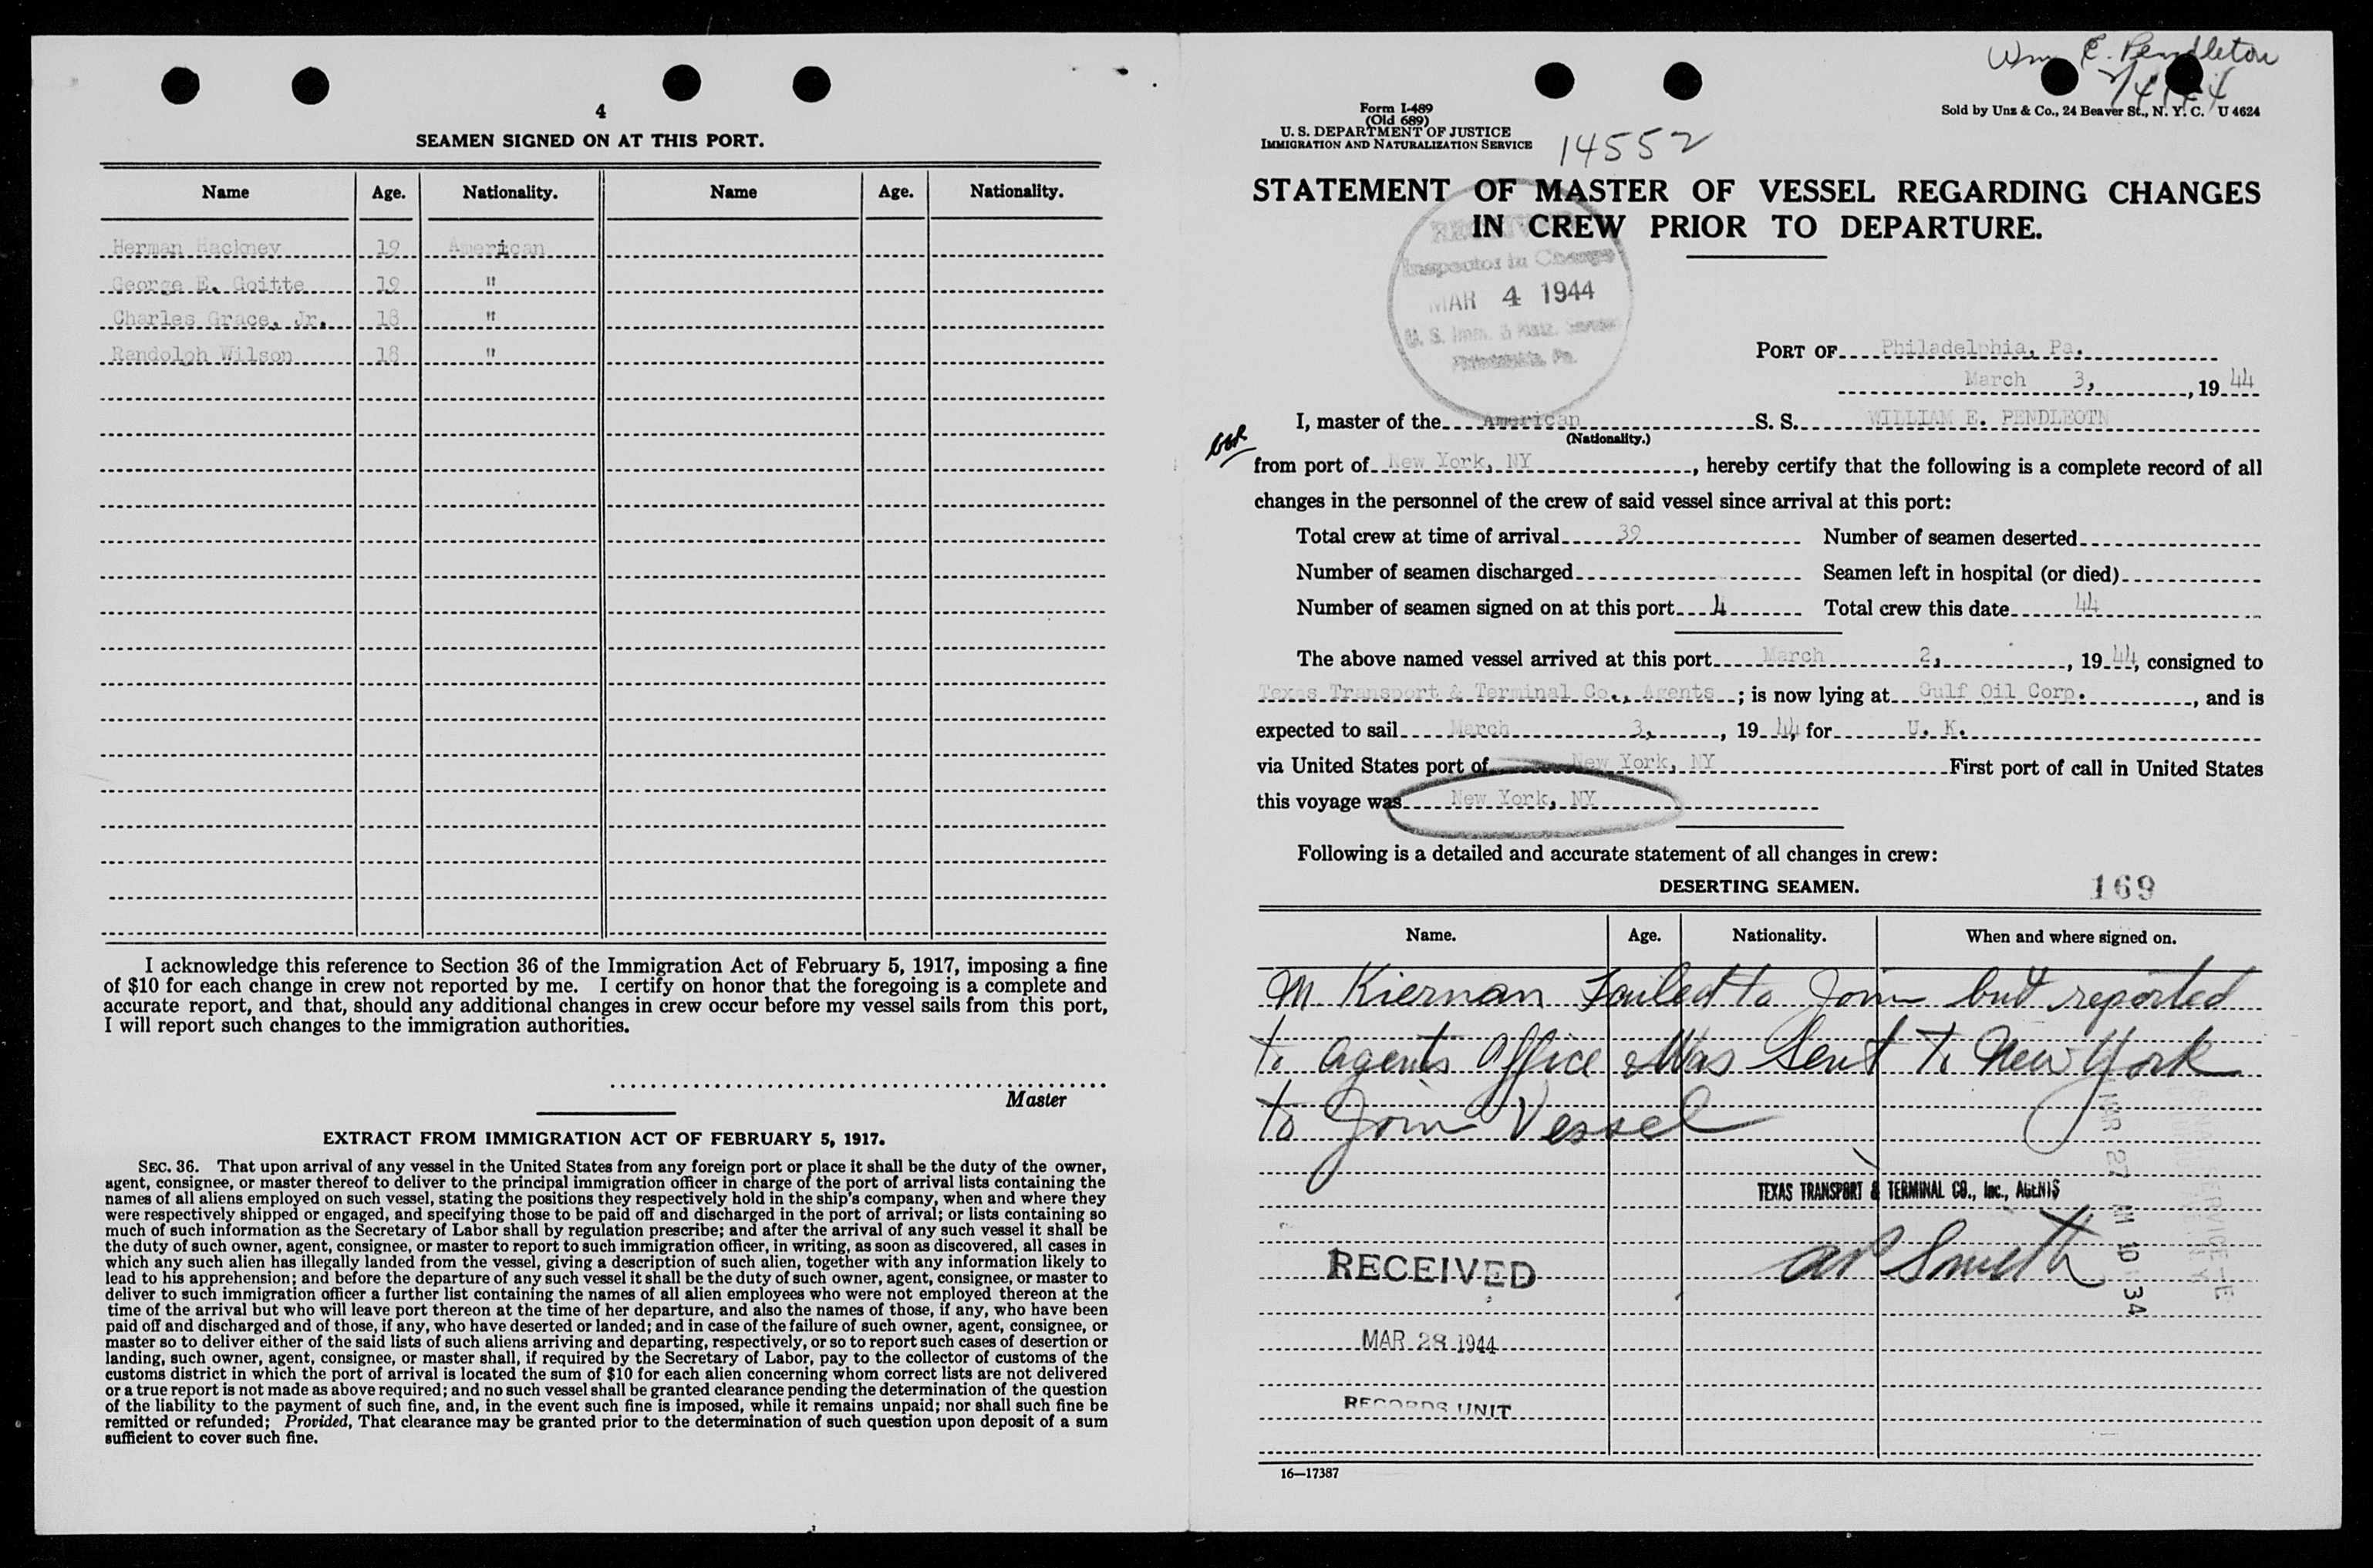 4
SEAMEN SIGNED ON AT THIS PORT.
Name Age. Nationality. Name Age. Nationality.
Herman Hackney 19 American
George E. Goitte 19 "
Charles Grace, Jr. 18 "
Randolph Wilson 18 "
I acknowledge this reference to Section 36 of the Immigration Act of February 5, 1917, imposing a fine
of $10 for each change in crew not reported by me. I certify on honor that the foregoing is a complete and
accurate report, and that, should any additional changes in crew occur before my vessel sails from this port,
I will report such changes to the immigration authorities.
Master
EXTRACT FROM IMMIGRATION ACT OF FEBRUARY 5, 1917.
SEC. 36. That upon arrival of any vessel in the United States from any foreign port or place it shall be the duty of the owner,
agent, consignee, or master thereof to deliver to the principal immigration officer in charge of the port of arrival lists containing the
names of all aliens employed on such vessel, stating the positions they respectively hold in the ship's company, when and where they
were respectively shipped or engaged, and specifying those to be paid off and discharged in the port of arrival; or lists containing so
much of such information as the Secretary of Labor shall by regulation prescribe; and after the arrival of any such vessel it shall be
the duty of such owner, agent, consignee, or master to report to such immigration officer, in writing, as soon as discovered, all cases in
which any such alien has illegally landed from the vessel, giving a description of such alien, together with any information likely to
lead to his apprehension; and before the departure of any such vessel it shall be the duty of such owner, agent, consignee, or master to
deliver to such immigration officer a further list containing the names of all alien employees who were not employed thereon at the
time of the arrival but who will leave port thereon at the time of her departure, and also the names of those, if any, who have been
paid off and discharged and of those, if any, who have deserted or landed; and in case of the failure of such owner, agent, consignee, or
master so to deliver either of the said lists of such aliens arriving and departing, respectively, or so to report such cases of desertion or
landing, such owner, agent, consignee, or master shall, if required by the Secretary of Labor, pay to the collector of customs of the
customs district in which the port of arrival is located the sum of $10 for each alien concerning whom correct lists are not delivered
or a true report is not made as above required; and no such vessel shall be granted clearance pending the determination of the question
of the liability to the payment of such fine, and, in the event such fine is imposed, while it remains unpaid; nor shall such fine be
remitted or refunded; Provided, That clearance may be granted prior to the determination of such question upon deposit of a sum
sufficient to cover such fine.
Wm E. Pendleton
Form I-489
(Old 689)
U. S. DEPARTMENT OF JUSTICE
IMMIGRATION AND NATURALIZATION SERVICE
14552
Sold by Unz & Co., 24 Beaver St., N. Y. C. U 4624
STATEMENT OF MASTER OF VESSEL REGARDING CHANGES
IN CREW PRIOR TO DEPARTURE.
RECEIVED
Inspector in Charge
MAR 4 1944
U. S. Imm. & Natz. Service
Philadelphia, Pa.
PORT OF Philadelphia, Pa.
March 3, 19 44
I, master of the American S. S. WILLIAM E. PENDLEOTN
(Nationality.)
from port of New York, NY, hereby certify that the following is a complete record of all
changes in the personnel of the crew of said vessel since arrival at this port:
Total crew at time of arrival 39 Number of seamen deserted
Number of seamen discharged Seamen left in hospital (or died)
Number of seamen signed on at this port 4 Total crew this date 44
The above named vessel arrived at this port March 2, 19 44, consigned to
Texas Transport & Terminal Co., Agents; is now lying at Gulf Oil Corp., and is
expected to sail March 3, 19 44 for U. K.
via United States port of New York, NY First port of call in United States
this voyage was New York, NY
Following is a detailed and accurate statement of all changes in crew:
DESERTING SEAMEN.
169
Name. Age. Nationality. When and where signed on.
M. Kiernan Failed to Join but reported
to Agents Office & Was Sent to New York
to Join Vessel
TEXAS TRANSPORT & TERMINAL CO., Inc., AGENTS
AP Smith
MAR 27 AM 10 34
RECEIVED
MAR 28 1944
RECORDS UNIT
16—17387